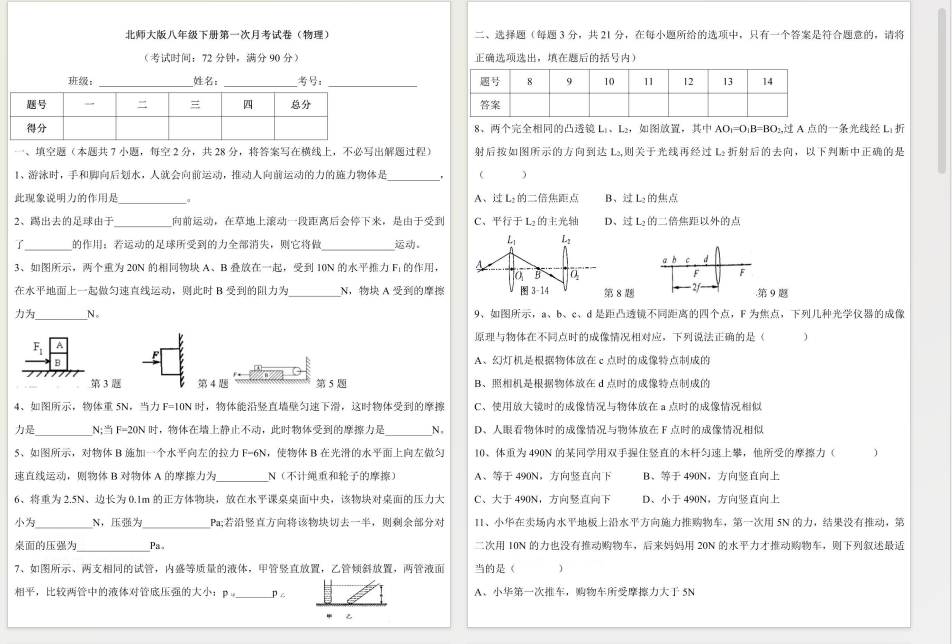 北师大版八年级下册第一次月考试卷（物理）
（考试时间：72 分钟，满分 90 分）
班级：__________________姓名：______________考号：_________________
题号 一 二 三 四 总分
得分
一、填空题（本题共 7 小题，每空 2 分，共 28 分，将答案写在横线上，不必写出解题过程）
1、游泳时，手和脚向后划水，人就会向前运动，推动人向前运动的力的施力物体是__________，
此现象说明力的作用是_____________。
2、踢出去的足球由于___________向前运动，在草地上滚动一段距离后会停下来，是由于受到
了_________的作用；若运动的足球所受到的力全部消失，则它将做______________运动。
3、如图所示，两个重为 20N 的相同物块 A、B 叠放在一起，受到 10N 的水平推力 F₁ 的作用，
在水平地面上一起做匀速直线运动，则此时 B 受到的阻力为__________N，物块 A 受到的摩擦
力为__________N。
F₁ A B
F
F A B
第 3 题 第 4 题 第 5 题
4、如图所示，物体重 5N，当力 F=10N 时，物体能沿竖直墙壁匀速下滑，这时物体受到的摩擦
力是___________N;当 F=20N 时，物体在墙上静止不动，此时物体受到的摩擦力是_________N。
5、如图所示，对物体 B 施加一个水平向左的拉力 F=6N，使物体 B 在光滑的水平面上向左做匀
速直线运动，则物体 B 对物体 A 的摩擦力为__________N（不计绳重和轮子的摩擦）
6、将重为 2.5N、边长为 0.1m 的正方体物块，放在水平课桌桌面中央，该物块对桌面的压力大
小为___________N，压强为_____________Pa;若沿竖直方向将该物块切去一半，则剩余部分对
桌面的压强为______________Pa。
7、如图所示、两支相同的试管，内盛等质量的液体，甲管竖直放置，乙管倾斜放置，两管液面
相平，比较两管中的液体对管底压强的大小：p 甲_______p 乙
甲 乙
二、选择题（每题 3 分，共 21 分，在每小题所给的选项中，只有一个答案是符合题意的，请将
正确选项选出，填在题后的括号内）
题号 8 9 10 11 12 13 14
答案
8、两个完全相同的凸透镜 L₁、L₂，如图放置，其中 AO₁=O₁B=BO₂,过 A 点的一条光线经 L₁ 折
射后按如图所示的方向到达 L₂,则关于光线再经过 L₂ 折射后的去向，以下判断中正确的是
（ ）
A、过 L₂ 的二倍焦距点 B、过 L₂ 的焦点
C、平行于 L₂ 的主光轴 D、过 L₂ 的二倍焦距以外的点
L₁ L₂
A O₁ B O₂
图 3-14
第 8 题
a b c d
F F
2f
第 9 题
9、如图所示，a、b、c、d 是距凸透镜不同距离的四个点，F 为焦点，下列几种光学仪器的成像
原理与物体在不同点时的成像情况相对应，下列说法正确的是（ ）
A、幻灯机是根据物体放在 c 点时的成像特点制成的
B、照相机是根据物体放在 d 点时的成像特点制成的
C、使用放大镜时的成像情况与物体放在 a 点时的成像情况相似
D、人眼看物体时的成像情况与物体放在 F 点时的成像情况相似
10、体重为 490N 的某同学用双手握住竖直的木杆匀速上攀，他所受的摩擦力（ ）
A、等于 490N，方向竖直向下 B、等于 490N，方向竖直向上
C、大于 490N，方向竖直向下 D、小于 490N，方向竖直向上
11、小华在卖场内水平地板上沿水平方向施力推购物车，第一次用 5N 的力，结果没有推动，第
二次用 10N 的力也没有推动购物车，后来妈妈用 20N 的水平力才推动购物车，则下列叙述最适
当的是（ ）
A、小华第一次推车，购物车所受摩擦力大于 5N